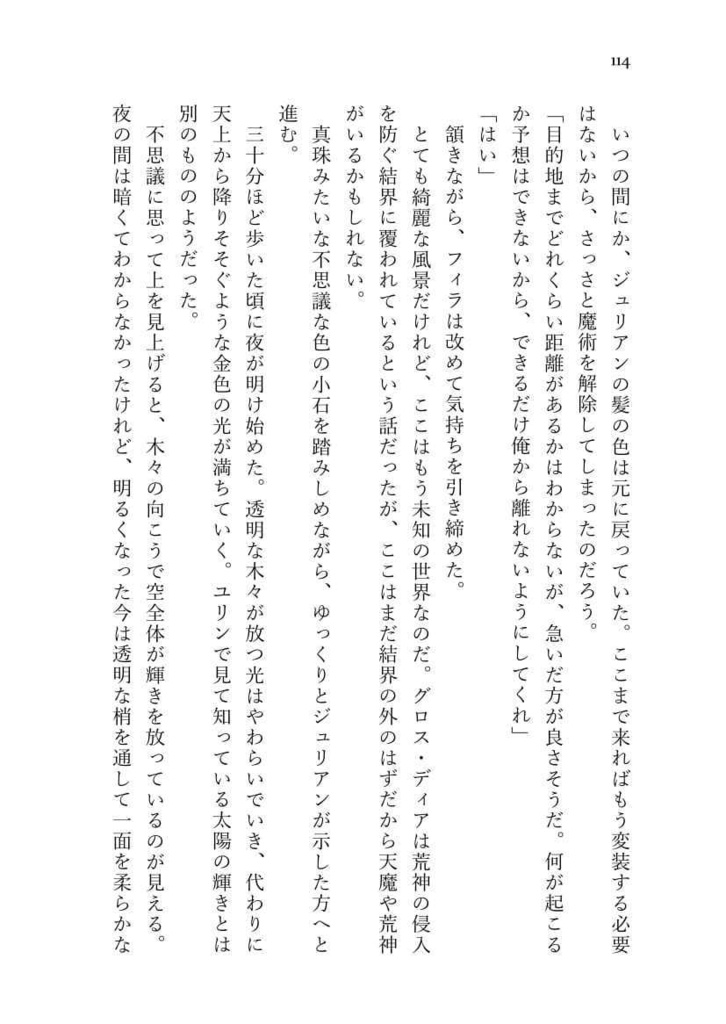 114
いつの間にか、ジュリアンの髪の色は元に戻っていた。ここまで来ればもう変装する必要
はないから、さっさと魔術を解除してしまったのだろう。
「目的地までどれくらい距離があるかはわからないが、急いだ方が良さそうだ。何が起こる
か予想はできないから、できるだけ俺から離れないようにしてくれ」
「はい」
頷きながら、フィラは改めて気持ちを引き締めた。
とても綺麗な風景だけれど、ここはもう未知の世界なのだ。グロス・ディアは荒神の侵入
を防ぐ結界に覆われているという話だったが、ここはまだ結界の外のはずだから天魔や荒神
がいるかもしれない。
真珠みたいな不思議な色の小石を踏みしめながら、ゆっくりとジュリアンが示した方へと
進む。
三十分ほど歩いた頃に夜が明け始めた。透明な木々が放つ光はやわらいでいき、代わりに
天上から降りそそぐような金色の光が満ちていく。ユリンで見て知っている太陽の輝きとは
別のもののようだった。
不思議に思って上を見上げると、木々の向こうで空全体が輝きを放っているのが見える。
夜の間は暗くてわからなかったけれど、明るくなった今は透明な梢を通して一面を柔らかな